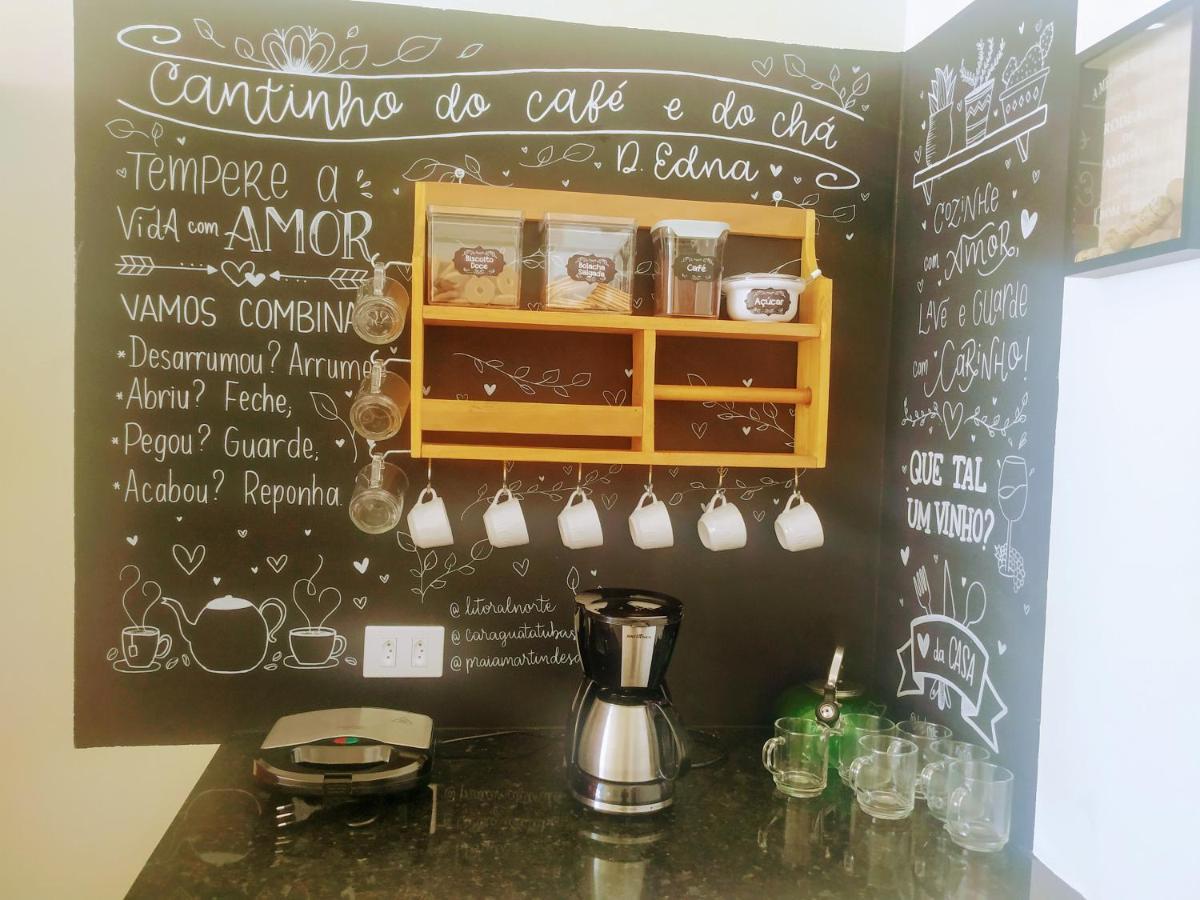 Cantinho do café e do chá
D. Edna
TEMPERE a
ViDA com AMOR
VAMOS COMBINA
*Desarrumou? Arrume
*Abriu? Feche,
*Pegou? Guarde,
*Acabou? Reponha.
@litoralnorte
@caraguatatubas
@praiamartindesá
Biscoito
Doce
Bolacha
Salgada
Café
Açúcar
COZiNHE
com AMOR,
LAVE e GUARDE
com CARiNHO!
QUE TAL
UM VINHO?
da CASA